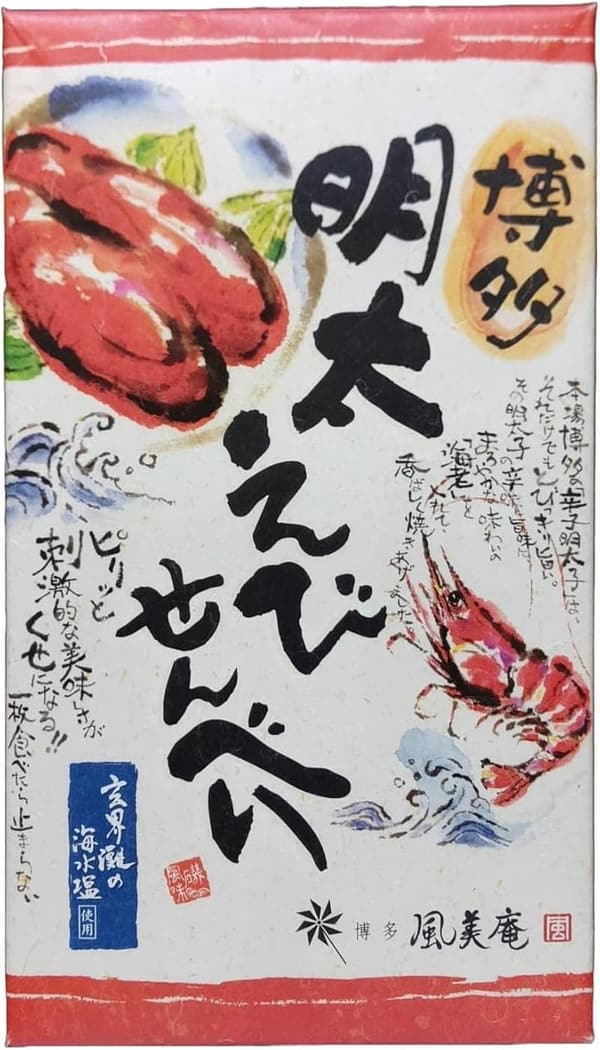 博多
明太
えび
せんべい
本場博多の「辛子明太子」は
それだけでもとびっきり旨い。
その明太子の辛味と旨味に
まろやかな味わいの
「海老」を
入れて
香ばしく焼きあげました。
ピリッと
刺激的な美味しさが
くせになる!!
一枚食べたら止まらない
玄界灘の
海水塩
使用
博多 風美庵